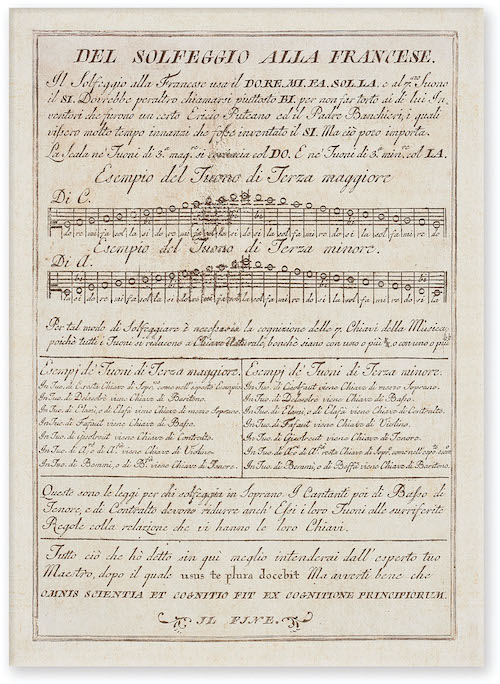 DEL SOLFEGGIO ALLA FRANCESE.
Il Solfeggio alla Francese usa il DO.RE.MI.FA.SOL.LA. e al 7.mo Suono
il SI. Dovrebbe peraltro chiamarsi piuttosto BI. per non far torto ai di lui In-
ventori che furono un certo Ericio Puteano ed il Padre Banchieri, i quali
vissero molto tempo innanzi che fosse inventato il SI. Ma ciò poco importa.
La Scala ne' Tuoni di 3.a mag.re si comincia col DO. E ne' Tuoni di 3.a min.re col LA.
Esempio del Tuono di Terza maggiore
Di C.
do re mi fa sol la si do re mi fa sol la si do si la sol fa mi re do
Esempio del Tuono di Terza minore.
Di A.
Per tal modo di Solfeggiare è necessaria la cognizione delle 7. Chiavi della Musica,
poichè tutti i Tuoni si riducono a Chiave Naturale, benchè siano con uno o più #, o con uno o più b
Esempj de' Tuoni di Terza maggiore.
In Tuo. di Cesolfaut Chiave di Sopr. come nell'esempio
In Tuo. di Delasolrè viene Chiave di Baritono.
In Tuo. di Elami, o di Elafà viene Chiave di mezzo Soprano.
In Tuo. di Fafaut viene Chiave di Basso.
In Tuo. di Gisolreut viene Chiave di Contralto.
In Tuo. di A.rè o di A.fà viene Chiave di Violino.
In Tuo. di Bemmi, o di B.fà viene Chiave di Tenore.
Esempj de' Tuoni di Terza minore.
In Tuo. di Cisolfaut viene Chiave di mezzo Soprano.
In Tuo. di Delasolrè viene Chiave di Basso.
In Tuo. di Elami, o di Elafà viene Chiave di Contralto.
In Tuo. di Fafaut viene Chiave di Violino.
In Tuo. di Gisolreut viene Chiave di Tenore.
In Tuo. di A.rè o di A.fà resta Chiave di Sopr. come nell'
In Tuo. di Bemmi, o di Beffà viene Chiave di Baritono.
Queste sono le leggi per chi solfeggia in Soprano I Cantanti poi di Basso di
Tenore, e di Contralto devono ridurre anch' Essi i loro Tuoni alle surriferiti
Regole colla relazione che vi hanno le loro Chiavi.
Tutto ciò che ho detto sin qui meglio intenderai dall' esperto tuo
Maestro, dopo il quale usus te plura docebit Ma avverti bene che
OMNIS SCIENTIA ET COGNITIO FIT EX COGNITIONE PRINCIPIORUM.
IL FINE.